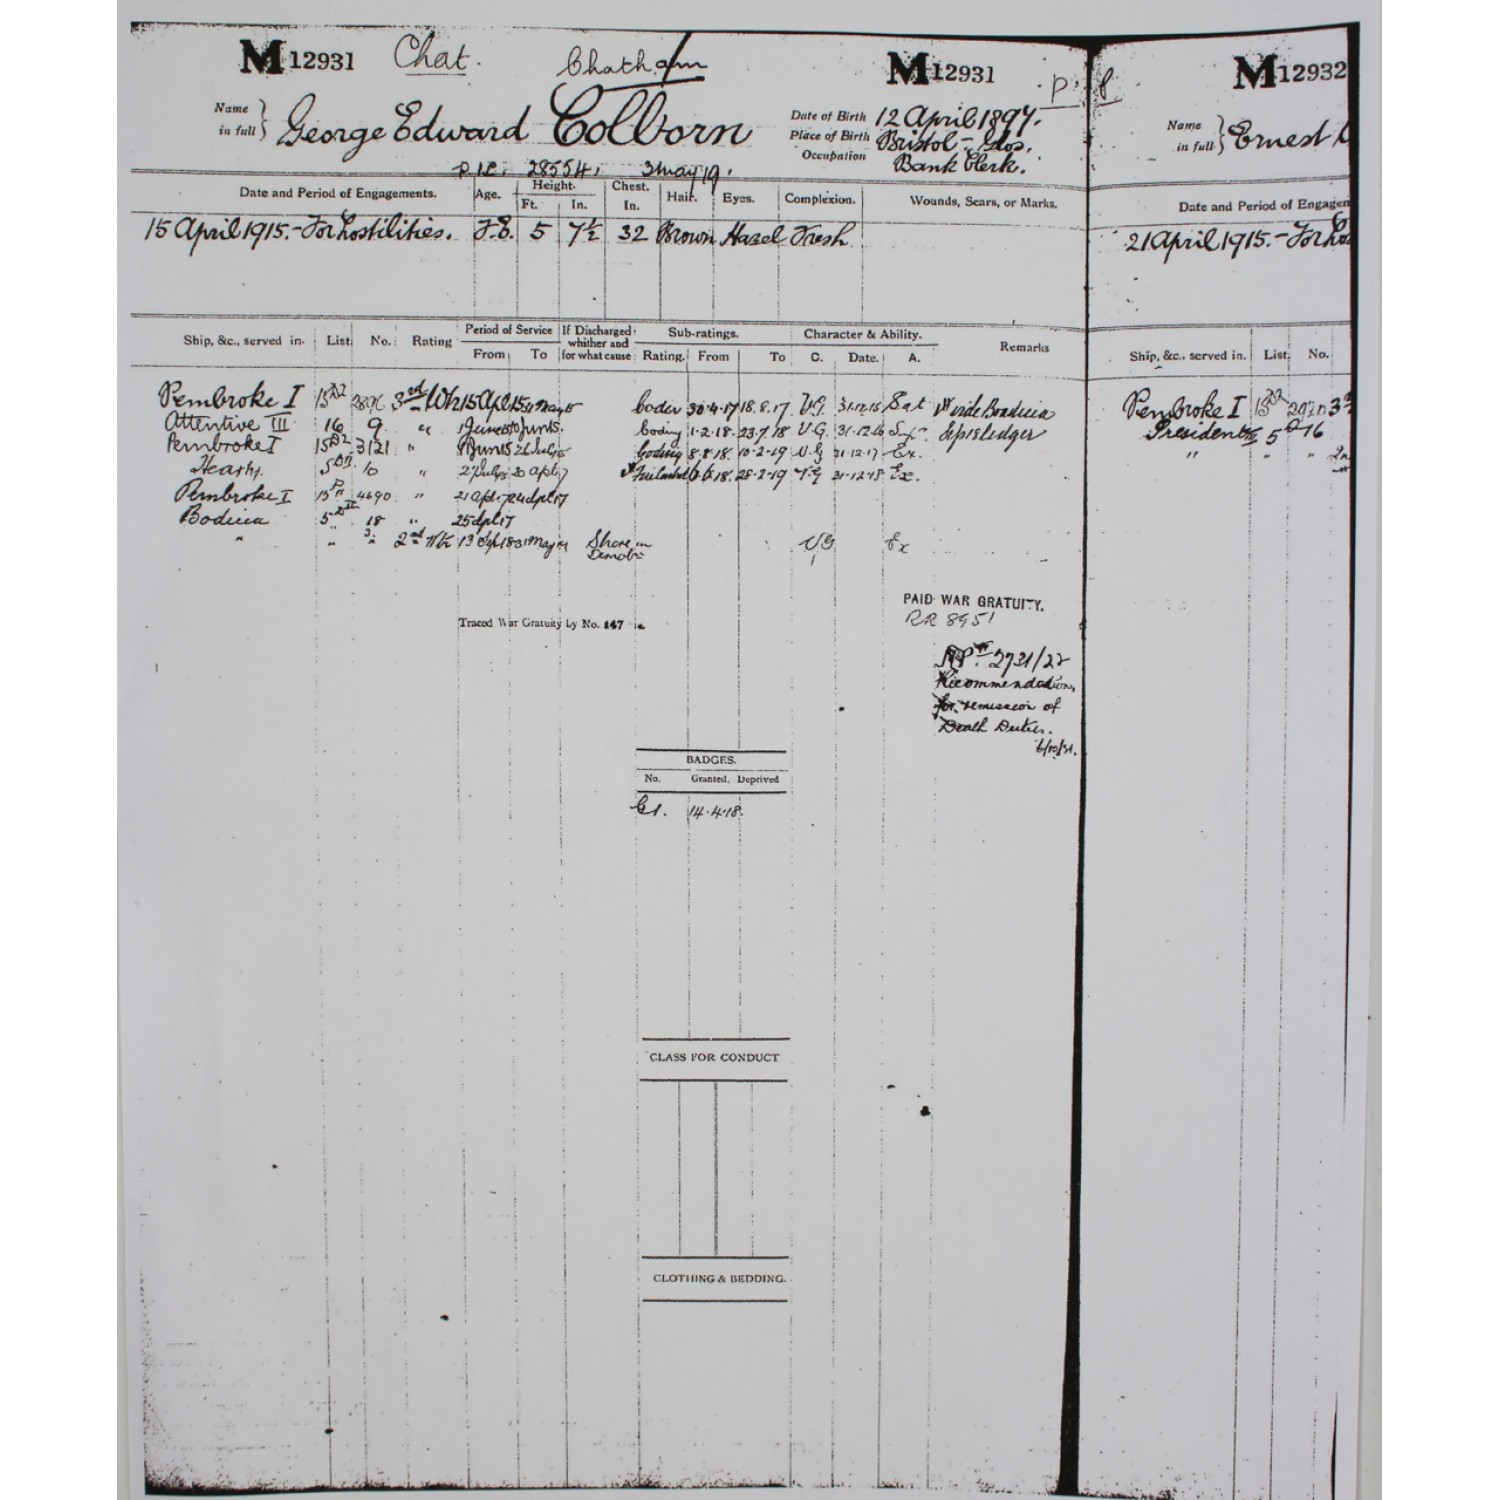 M 12931 Chat. Chatham M 12931
Name in full } George Edward Colborn
Date of Birth 12 April 1897.
Place of Birth Bristol - Glos.
Occupation Bank Clerk.
28554. 3 May 19.
Date and Period of Engagements. Age. Height. Ft. In. Chest. In. Hair. Eyes. Complexion. Wounds, Scars, or Marks.
15 April 1915. - For hostilities. 5 7½ 32 Brown Hazel Fresh
Ship, &c., served in. List. No. Rating Period of Service From To If Discharged whether and for what cause Sub-ratings. Rating. From To Character & Ability. C. Date. A. Remarks
Pembroke I 3rd Wr 15 Apl 15 31 May 15 Coder 30.4.17 18.8.17 V.G. 31.12.15 Sat
Attentive III 16 9 " Coding 1.2.18. 23.7.18 V.G. 31.12.16 ledger
Pembroke I 3121 " 26 July 15 Coding 8.8.18. 10.2.19 V.G 31.12.17 Ex.
10 " 20 Apl 17 28.2.19 V.G 31.12.18 Ex.
Pembroke I 4690 " 21 Apl 17 24 Apl 17
18 " 25 Apl 17
" " 2nd Wr 13 Sep 18 31 May 19 Shore on Demobn VG Ex
PAID WAR GRATUITY.
RR 8951
Traced War Gratuity by No. 147
2731/22
Recommendation
for remission of
Death Duties.
BADGES.
No. Granted. Deprived
G1. 14.4.18.
CLASS FOR CONDUCT
CLOTHING & BEDDING.
M 12932
Name in full } Ernest
Date and Period of Engagem
21 April 1915. - For ho
Ship, &c., served in. List. No.
Pembroke I
President 5 16
" " "